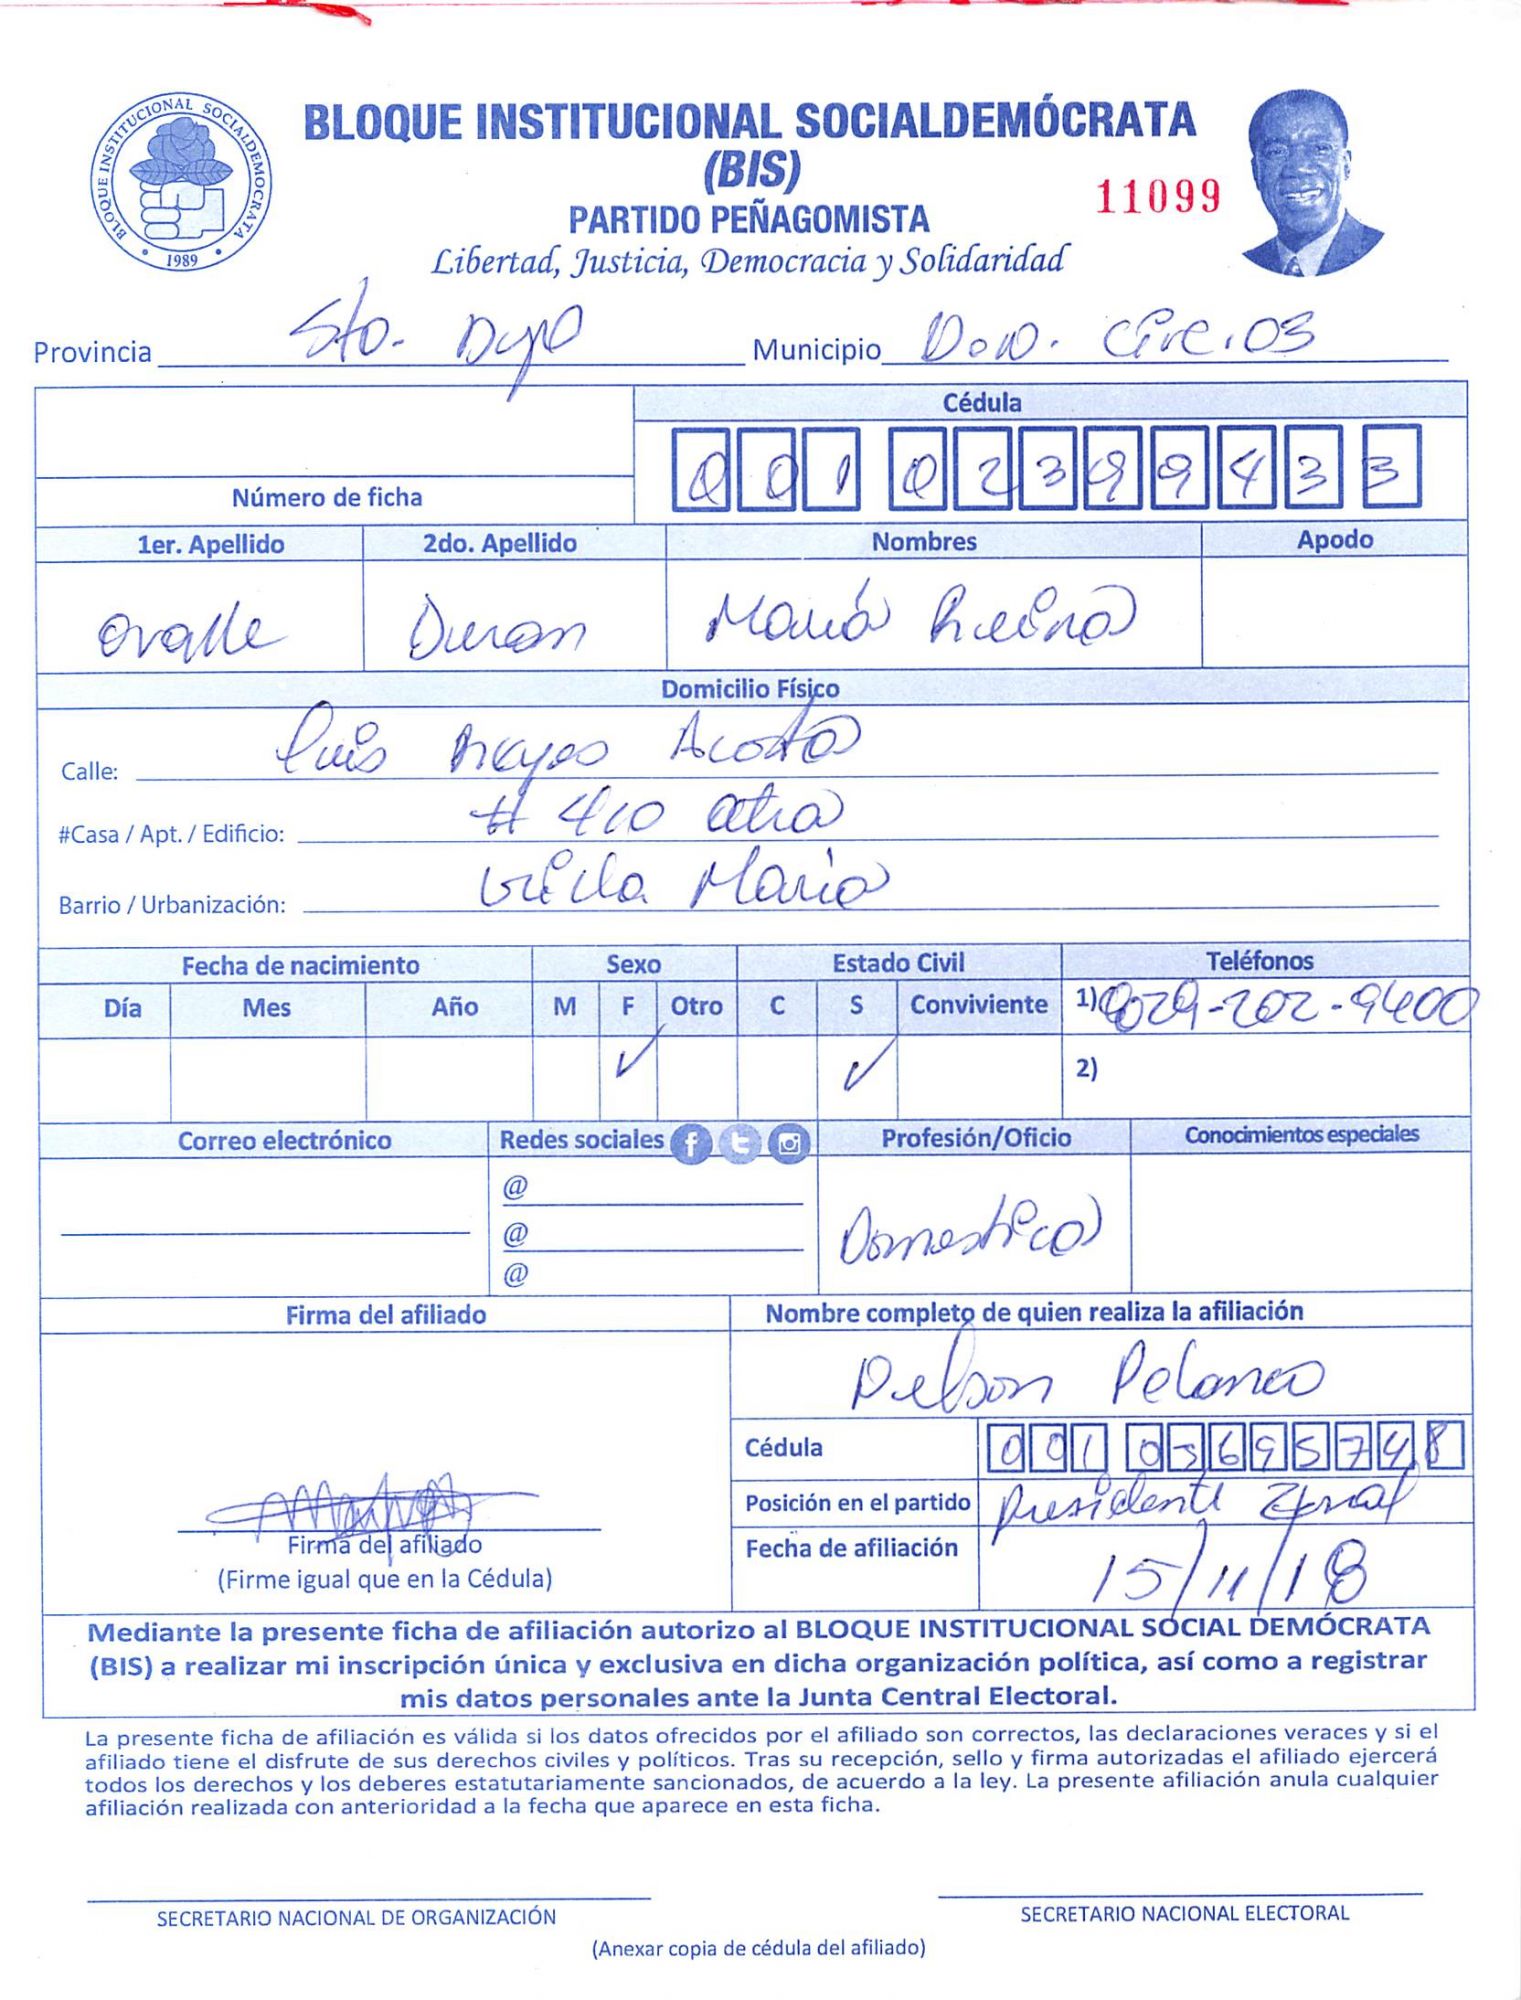 BLOQUE INSTITUCIONAL SOCIALDEMOCRATA
1989
BLOQUE INSTITUCIONAL SOCIALDEMÓCRATA
(BIS)
PARTIDO PEÑAGOMISTA
11099
Libertad, Justicia, Democracia y Solidaridad
Provincia Sto. Dgo Municipio D.N. Circ. 03
Cédula
001 0239943 3
Número de ficha
1er. Apellido 2do. Apellido Nombres Apodo
Ovalle Duran María Reina
Domicilio Físico
Calle: Luis Reyes Acosta
#Casa / Apt. / Edificio: # 410 atra
Barrio / Urbanización: Villa Maria
Fecha de nacimiento Sexo Estado Civil Teléfonos
Día Mes Año M F Otro C S Conviviente 1) 829-202-9400
✓ ✓ 2)
Correo electrónico Redes sociales Profesión/Oficio Conocimientos especiales
@
@
@
Domestica
Firma del afiliado Nombre completo de quien realiza la afiliación
Polanco
Cédula 001 0369574 8
Posición en el partido Presidente Zonal
Fecha de afiliación 15/11/18
Firma del afiliado
(Firme igual que en la Cédula)
Mediante la presente ficha de afiliación autorizo al BLOQUE INSTITUCIONAL SOCIAL DEMÓCRATA
(BIS) a realizar mi inscripción única y exclusiva en dicha organización política, así como a registrar
mis datos personales ante la Junta Central Electoral.
La presente ficha de afiliación es válida si los datos ofrecidos por el afiliado son correctos, las declaraciones veraces y si el
afiliado tiene el disfrute de sus derechos civiles y políticos. Tras su recepción, sello y firma autorizadas el afiliado ejercerá
todos los derechos y los deberes estatutariamente sancionados, de acuerdo a la ley. La presente afiliación anula cualquier
afiliación realizada con anterioridad a la fecha que aparece en esta ficha.
SECRETARIO NACIONAL DE ORGANIZACIÓN SECRETARIO NACIONAL ELECTORAL
(Anexar copia de cédula del afiliado)